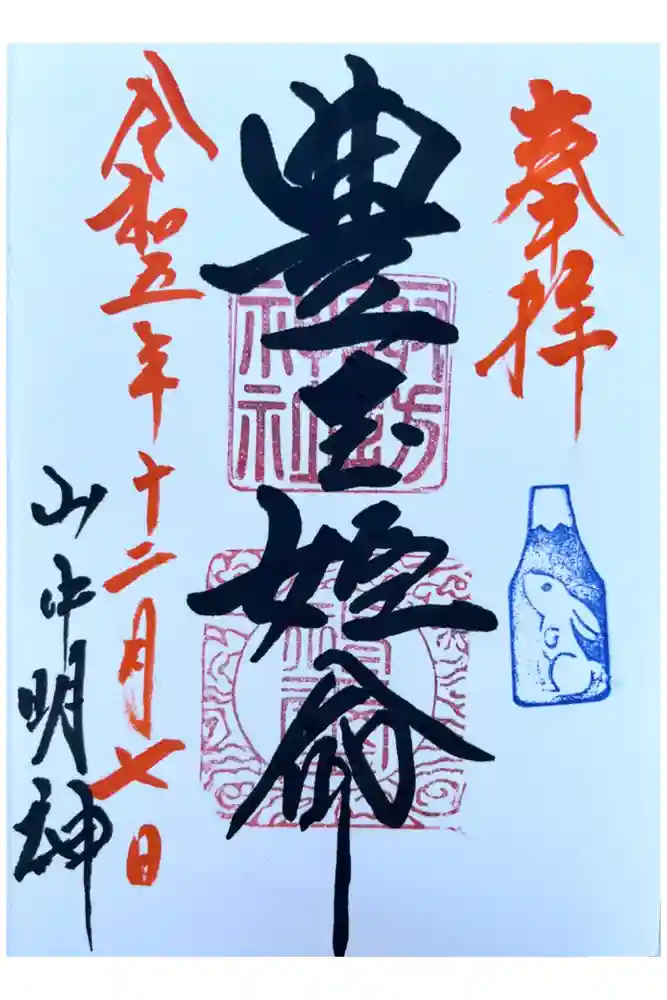 奉拝
豊玉姫命
神社
令和五年十二月七日
山中明神